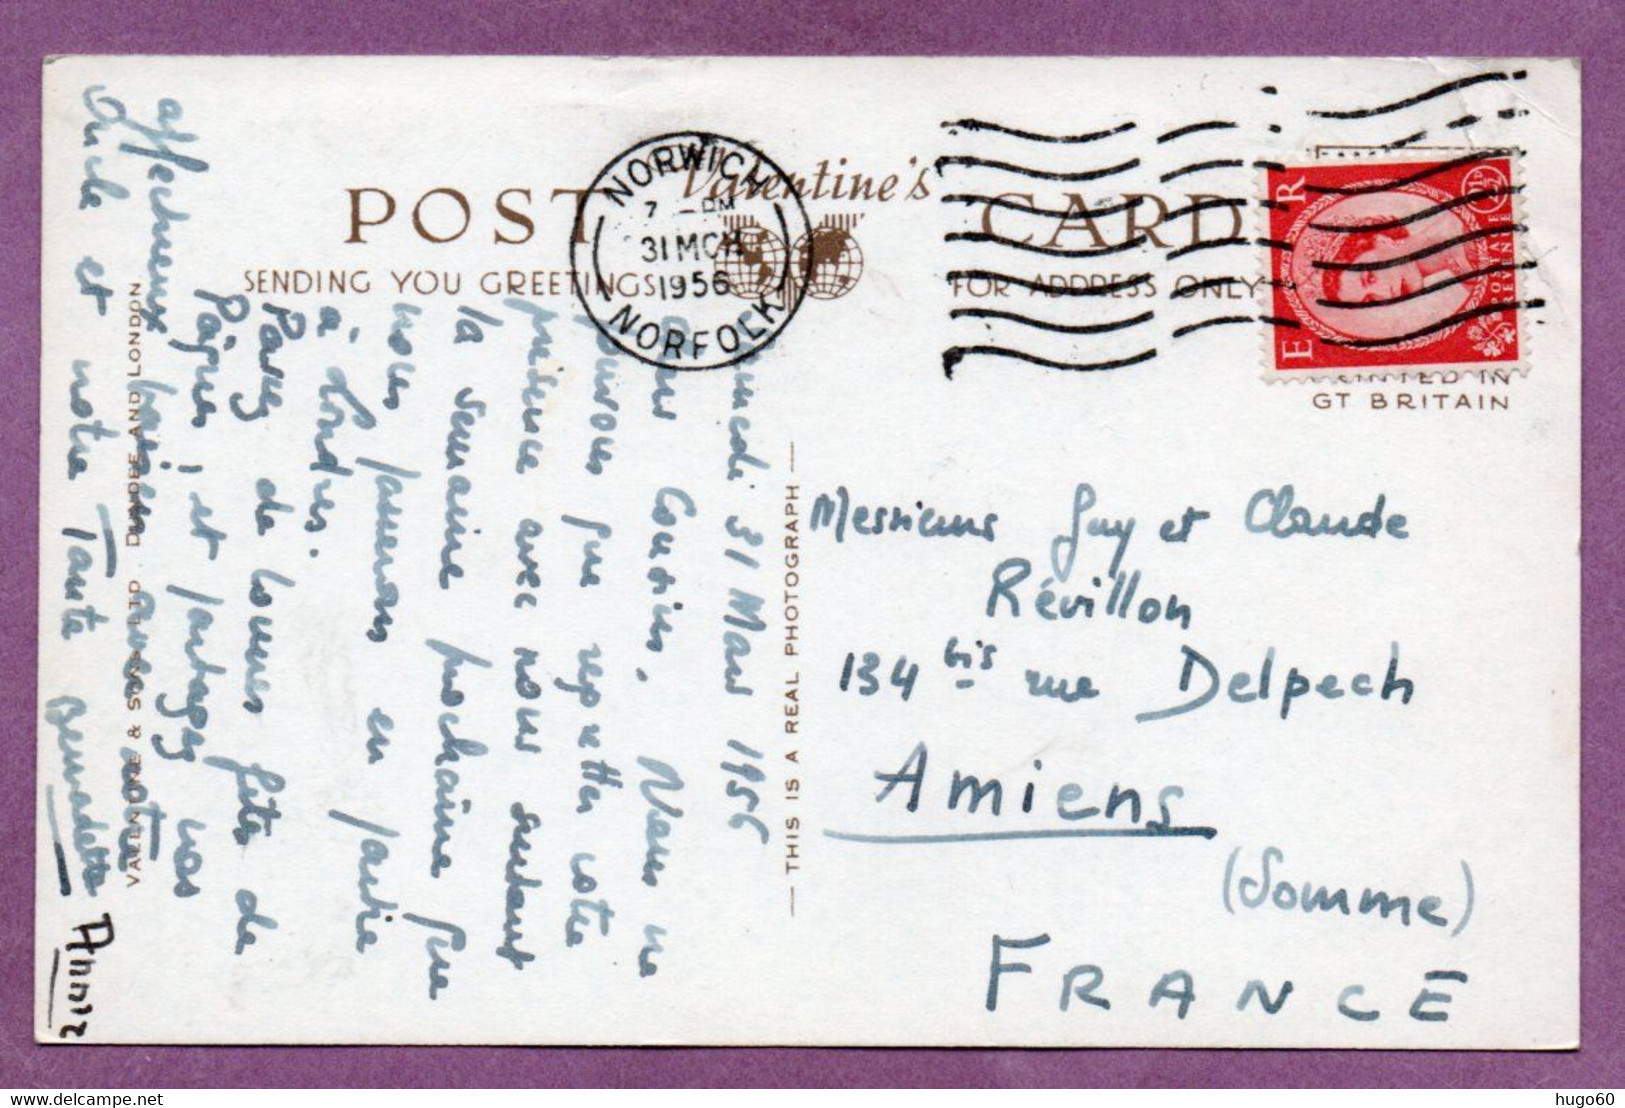 POST
Valentine's
CARD
SENDING YOU GREETINGS
FOR ADDRESS ONLY
NORWICH
7 - PM
31 MCH
1956
NORFOLK
E R
2½D
POSTAGE
REVENUE
E
PRINTED IN
GT BRITAIN
31 Mars 1956
Cousins, Nous ne
que regretter votre
présence avec nous surtout
la semaine prochaine que
nous passerons en partie
à Londres.
Passez de bonnes fêtes de
Pâques, et partagez nos
affectueux baisers avec votre
Oncle et notre Tante Bernadette
Annie
VALENTINE & SONS, LTD. DUNDEE AND LONDON
THIS IS A REAL PHOTOGRAPH
Messieurs Guy et Claude
Révillon
134 bis rue Delpech
Amiens
(Somme)
FRANCE
hugo60